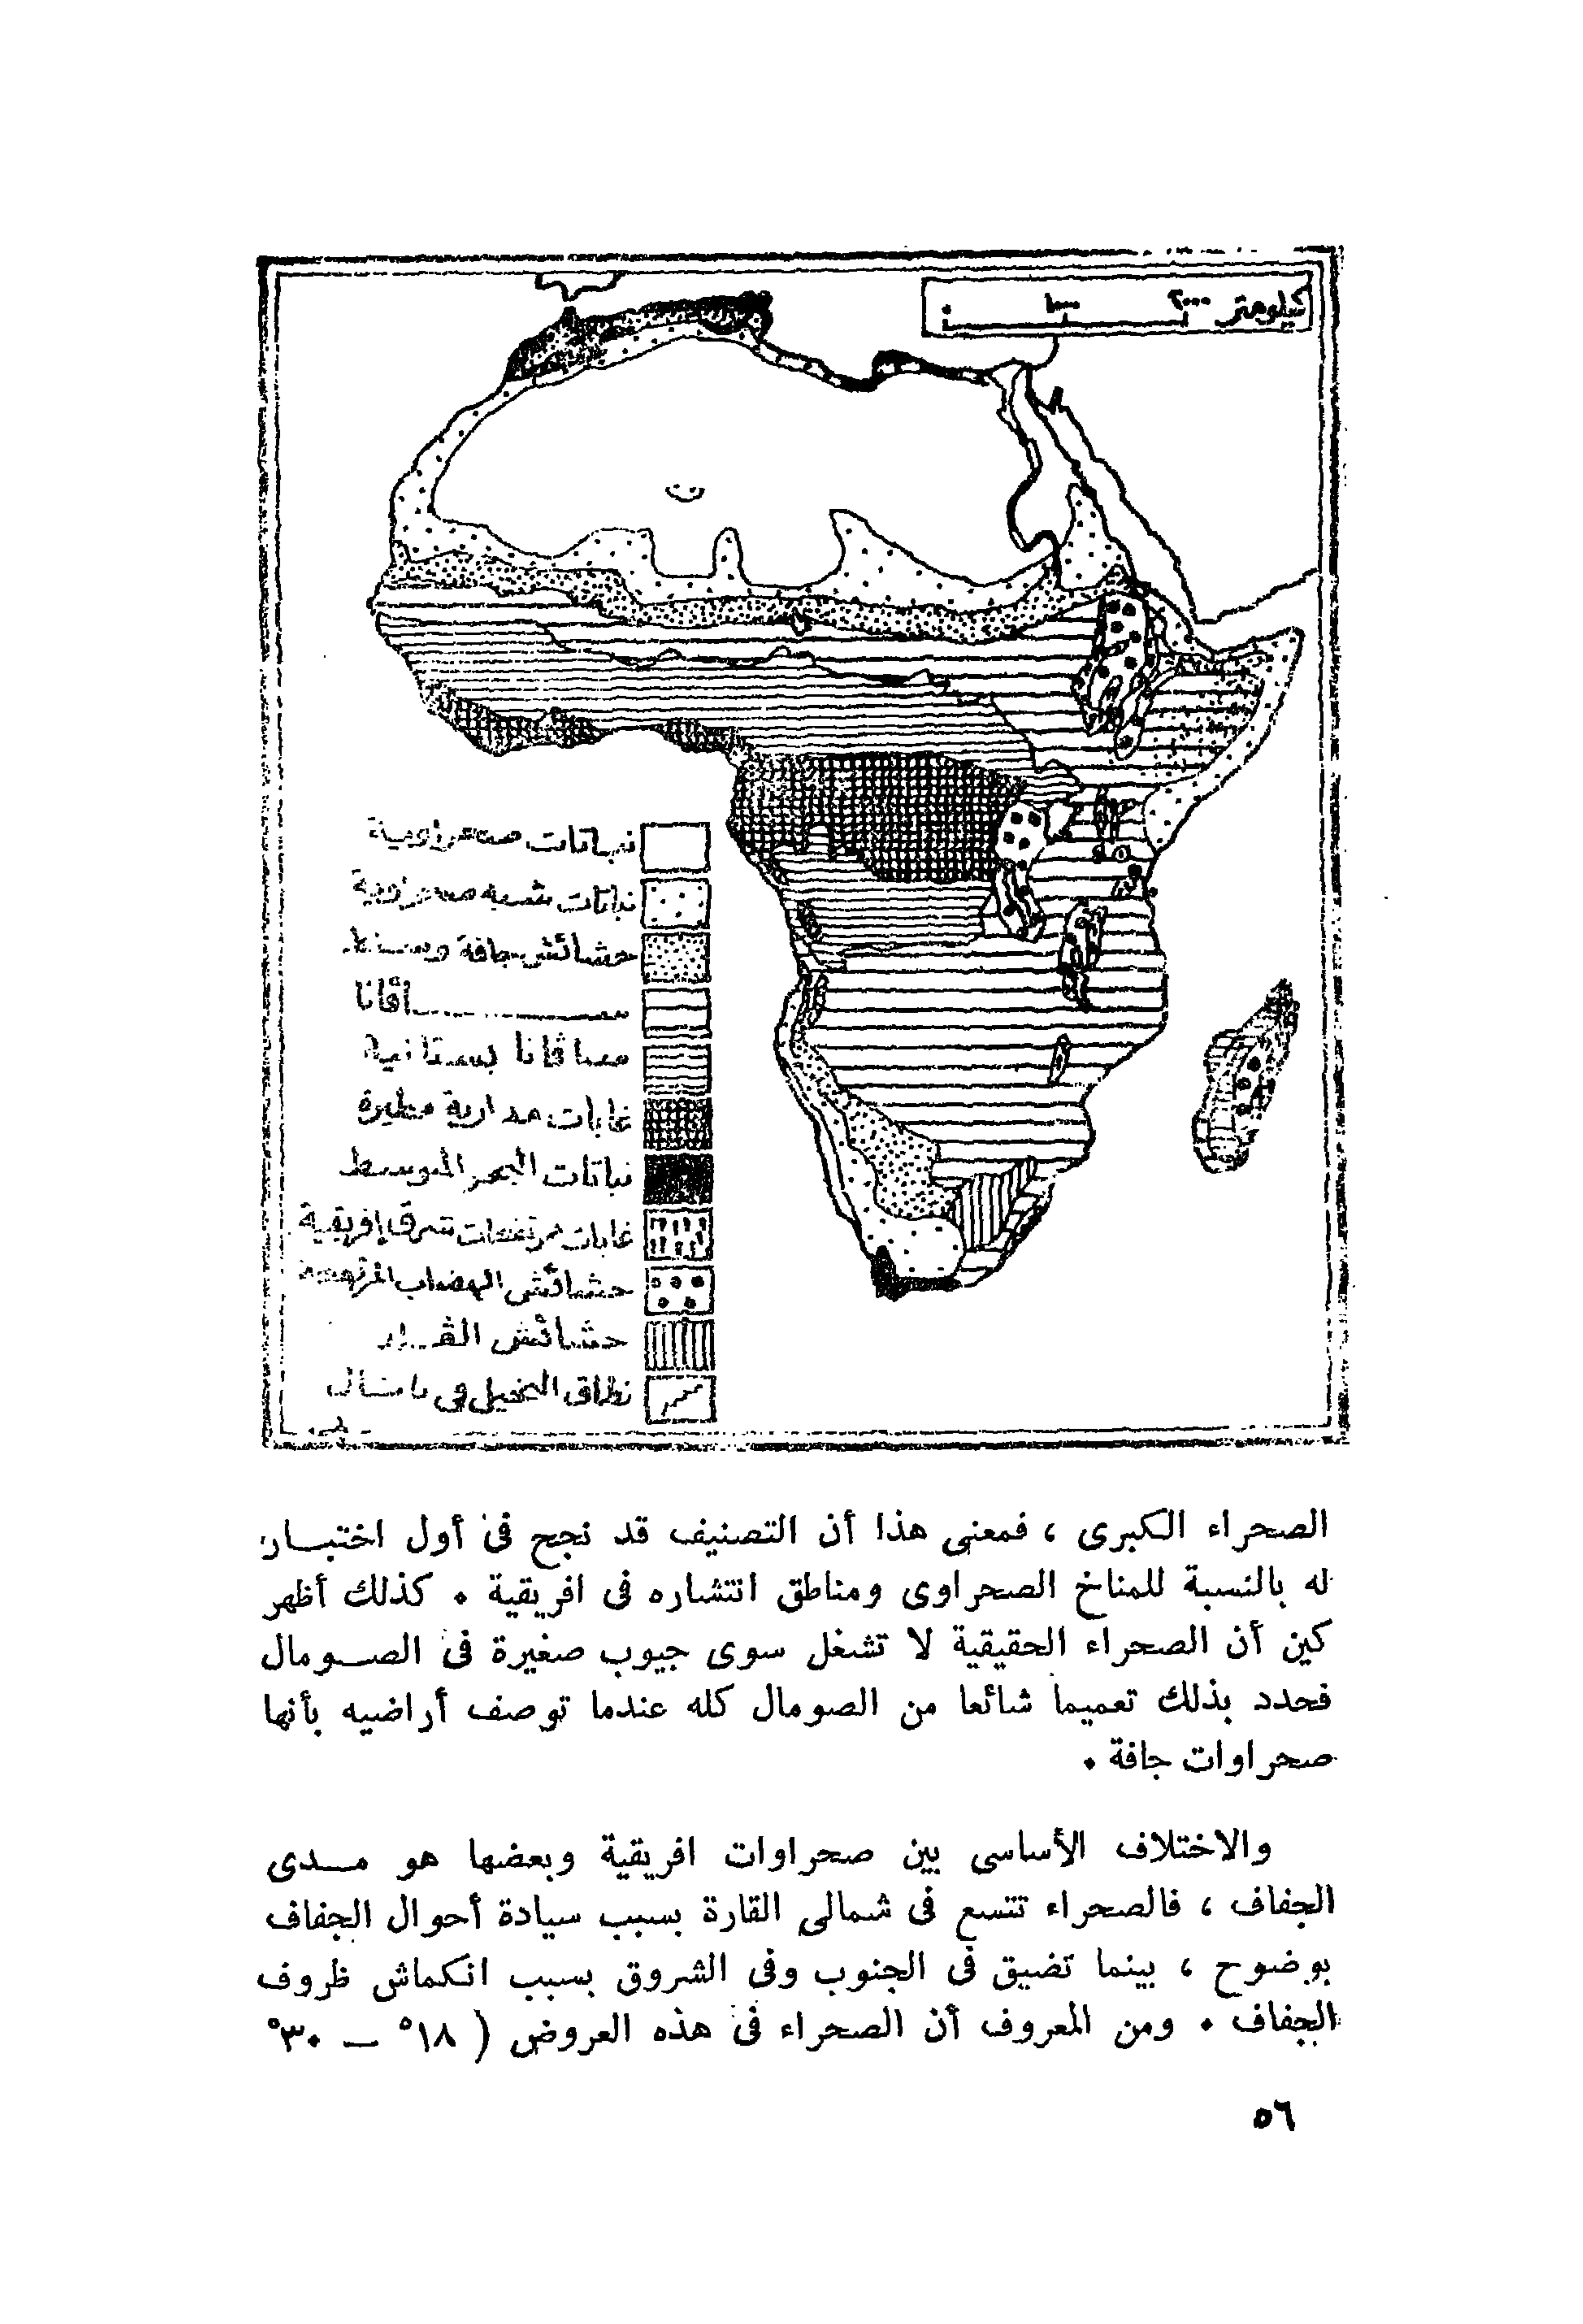 كيلومتر ٢٠٠٠ ١٠٠٠ ٠
نباتات صحراوية
نباتات شبه صحراوية
حشائش جافة وسنط
سافانا
سافانا بستانية
غابات مدارية مطيرة
نباتات البحر المتوسط
غابات مرتفعات شرق إفريقية
حشائش الهضاب المرتفعة
حشائش الڤلد
نطاق النخيل في
الصحراء الكبرى ، فمعنى هذا أن التصنيف قد نجح فى أول اختبــار
له بالنسبة للمناخ الصحراوى ومناطق انتشاره فى افريقية ٠ كذلك أظهر
كين أن الصحراء الحقيقية لا تشغل سوى جيوب صغيرة فى الصــومال
فحدد بذلك تعميما شائعا من الصومال كله عندما توصف أراضيه بأنها
صحراوات جافة ٠
والاختلاف الأساسى بين صحراوات افريقية وبعضها هو مــدى
الجفاف ، فالصحراء تتسع فى شمالى القارة بسبب سيادة أحوال الجفاف
بوضوح ، بينما تضيق فى الجنوب وفى الشروق بسبب انكماش ظروف
الجفاف ٠ ومن المعروف أن الصحراء فى هذه العروض ( ١٨° — ٣٠°
٥٦